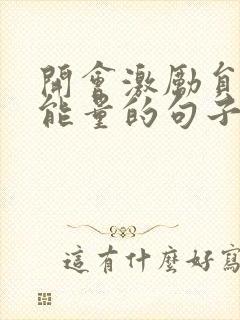 開會激勵員
能量的句子
這有什麼好寫